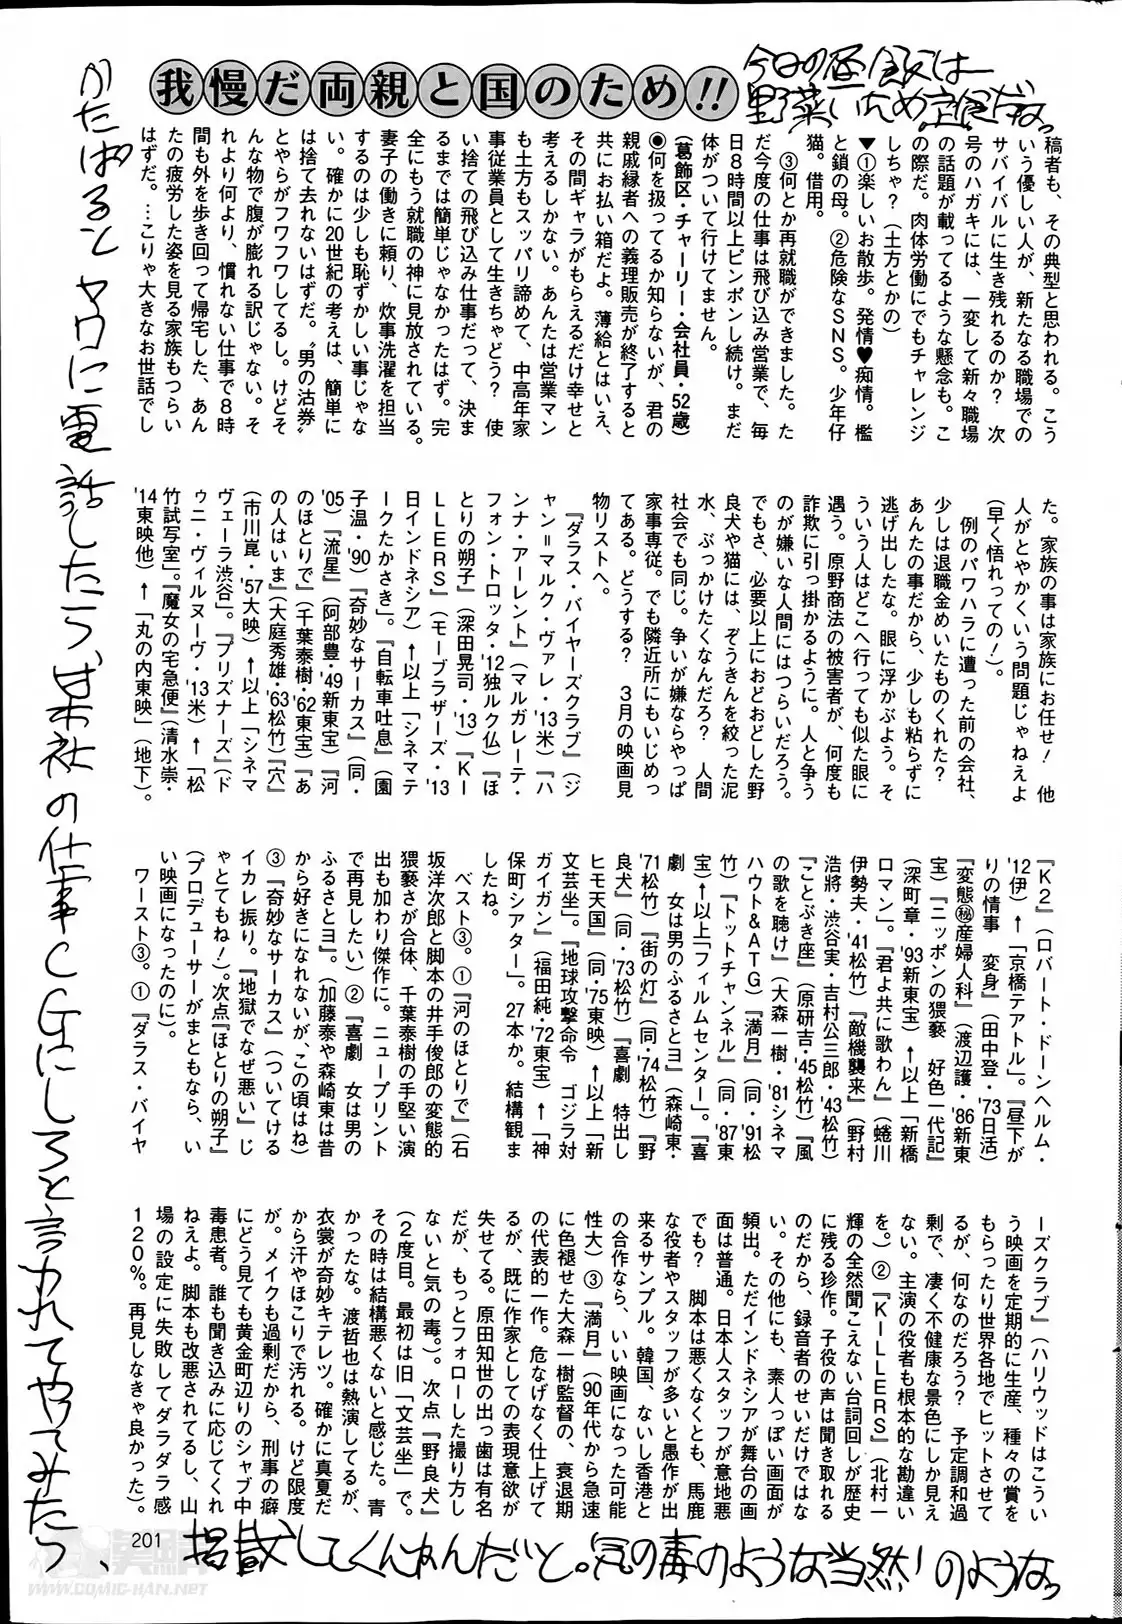 我慢だ両親と国のため!!
今日の昼食は
野菜いため主食だな。
稿者も、その典型と思われる。こう
いう優しい人が、新たなる職場での
サバイバルに生き残れるのか? 次
号のハガキには、一変して新々職場
の話題が載ってるような懸念も。こ
の際だ。肉体労働にでもチャレンジ
しちゃ?(土方とかの)
▼①楽しいお散歩。発情♥痴情。檻
と鎖の母。②危険なSNS。少年仔
猫。借用。
③何とか再就職ができました。た
だ今度の仕事は飛び込み営業で、毎
日8時間以上ピンポンし続け。まだ
体がついて行けてません。
(葛飾区・チャーリー・会社員・52歳)
◉何を扱ってるか知らないが、君の
親戚縁者への義理販売が終了すると
共にお払い箱だよ。薄給とはいえ、
その間ギャラがもらえるだけ幸せと
考えるしかない。あんたは営業マン
も土方もスッパリ諦めて、中高年家
事従業員として生きちゃどう? 使
い捨ての飛び込み仕事だって、決ま
るまでは簡単じゃなかったはず。完
全にもう就職の神に見放されている。
妻子の働きに頼り、炊事洗濯を担当
するのは少しも恥ずかしい事じゃな
い。確かに20世紀の考えは、簡単に
は捨て去れないはずだ。〝男の沽券〟
とやらがフワフワしてるし。けどそ
んな物で腹が膨れる訳じゃない。そ
れより何より、慣れない仕事で8時
間も外を歩き回って帰宅した、あん
たの疲労した姿を見る家族もつらい
はずだ。…こりゃ大きなお世話でし
た。家族の事は家族にお任せ! 他
人がとやかくいう問題じゃねえよ
(早く悟れっての!)。
例のパワハラに遭った前の会社、
少しは退職金めいたものくれた?
あんたの事だから、少しも粘らずに
逃げ出したな。眼に浮かぶよう。そ
ういう人はどこへ行っても似た眼に
遇う。原野商法の被害者が、何度も
詐欺に引っ掛かるように。人と争う
のが嫌いな人間にはつらいだろう。
でもさ、必要以上におどおどした野
良犬や猫には、ぞうきんを絞った泥
水、ぶっかけたくなんだろ? 人間
社会でも同じ。争いが嫌ならやっぱ
家事専従。でも隣近所にもいじめっ
てある。どうする? 3月の映画見
物リストへ。
『ダラス・バイヤーズクラブ』(ジ
ャン=マルク・ヴァレ・'13米)『ハ
ンナ・アーレント』(マルガレーテ・
フォン・トロッタ・'12独ルク仏)『ほ
とりの朔子』(深田晃司・'13)『KI
LLERS』(モーブラザーズ・'13
日インドネシア)↑以上「シネマテ
ークたかさき」。『自転車吐息』(園
子温・'90)『奇妙なサーカス』(同・
'05)『流星』(阿部豊・'49新東宝)『河
のほとりで』(千葉泰樹・'62東宝)『あ
の人はいま』(大庭秀雄・'63松竹)『穴』
(市川崑・'57大映)↑以上「シネマ
ヴェーラ渋谷」。『プリズナーズ』(ド
ゥニ・ヴィルヌーヴ・'13米)↑「松
竹試写室」。『魔女の宅急便』(清水崇・
'14東映他)↑「丸の内東映」(地下)。
『K2』(ロバート・ドーンヘルム・
'12伊)↑「京橋テアトル」。『昼下が
りの情事 変身』(田中登・'73日活)
『変態㊙産婦人科』(渡辺護・'86新東
宝)『ニッポンの猥褻 好色一代記』
(深町章・'93新東宝)↑以上「新橋
ロマン」。『君よ共に歌わん』(蜷川
伊勢夫・'41松竹)『敵機襲来』(野村
浩將・渋谷実・吉村公三郎・'43松竹)
『ことぶき座』(原研吉・'45松竹)『風
の歌を聴け』(大森一樹・'81シネマ
ハウト&ATG)『満月』(同・'91松
竹)『トットチャンネル』(同・'87東
宝)↑以上「フィルムセンター」。『喜
劇 女は男のふるさとヨ』(森崎東・
'71松竹)『街の灯』(同・'74松竹)『野
良犬』(同・'73松竹)『喜劇 特出し
ヒモ天国』(同・'75東映)↑以上「新
文芸坐」。『地球攻撃命令 ゴジラ対
ガイガン』(福田純・'72東宝)↑「神
保町シアター」。27本か。結構観ま
したね。
ベスト③。①『河のほとりで』(石
坂洋次郎と脚本の井手俊郎の変態的
猥褻さが合体、千葉泰樹の手堅い演
出も加わり傑作に。ニュープリント
で再見したい)②『喜劇 女は男の
ふるさとヨ』(加藤泰や森崎東は昔
から好きになれないが、この頃はね)
③『奇妙なサーカス』(ついてける
イカレ振り。『地獄でなぜ悪い』じ
ゃとてもね!)。次点『ほとりの朔子』
(プロデューサーがまともなら、い
い映画になったのに)。
ワースト③。①『ダラス・バイヤ
ーズクラブ』(ハリウッドはこうい
う映画を定期的に生産、種々の賞を
もらったり世界各地でヒットさせて
るが、何なのだろう? 予定調和過
剰で、凄く不健康な景色にしか見え
ない。主演の役者も根本的な勘違い
を。)②『KILLERS』(北村一
輝の全然聞こえない台詞回しが歴史
に残る珍作。子役の声は聞き取れる
のだから、録音者のせいだけではな
い。その他にも、素人っぽい画面が
頻出。ただインドネシアが舞台の画
面は普通。日本人スタッフが意地悪
でも? 脚本は悪くなくとも、馬鹿
な役者やスタッフが多いと愚作が出
来るサンプル。韓国、ないし香港と
の合作なら、いい映画になった可能
性大)③『満月』(90年代から急速
に色褪せた大森一樹監督の、衰退期
の代表的一作。危なげなく仕上げて
るが、既に作家としての表現意欲が
失せてる。原田知世の出っ歯は有名
だが、もっとフォローした撮り方し
ないと気の毒。)。次点『野良犬』
(2度目。最初は旧「文芸坐」で。
その時は結構悪くないと感じた。青
かったな。渡哲也は熱演してるが、
衣裳が奇妙キテレツ。確かに真夏だ
から汗やほこりで汚れる。けど限度
が。メイクも過剰だから、刑事の癖
にどう見ても黄金町辺りのシャブ中
毒患者。誰も聞き込みに応じてくれ
ねえよ。脚本も改悪されてるし、山
場の設定に失敗してダラダラ感
120%。再見しなきゃ良かった)。
かたぱると ヤロに電話したら、某社の仕事CGにしろと言われてやってみたら、
掲載してくんねんだと。気の毒のような当然のような。
201
WWW.COMIC-HAN.NET